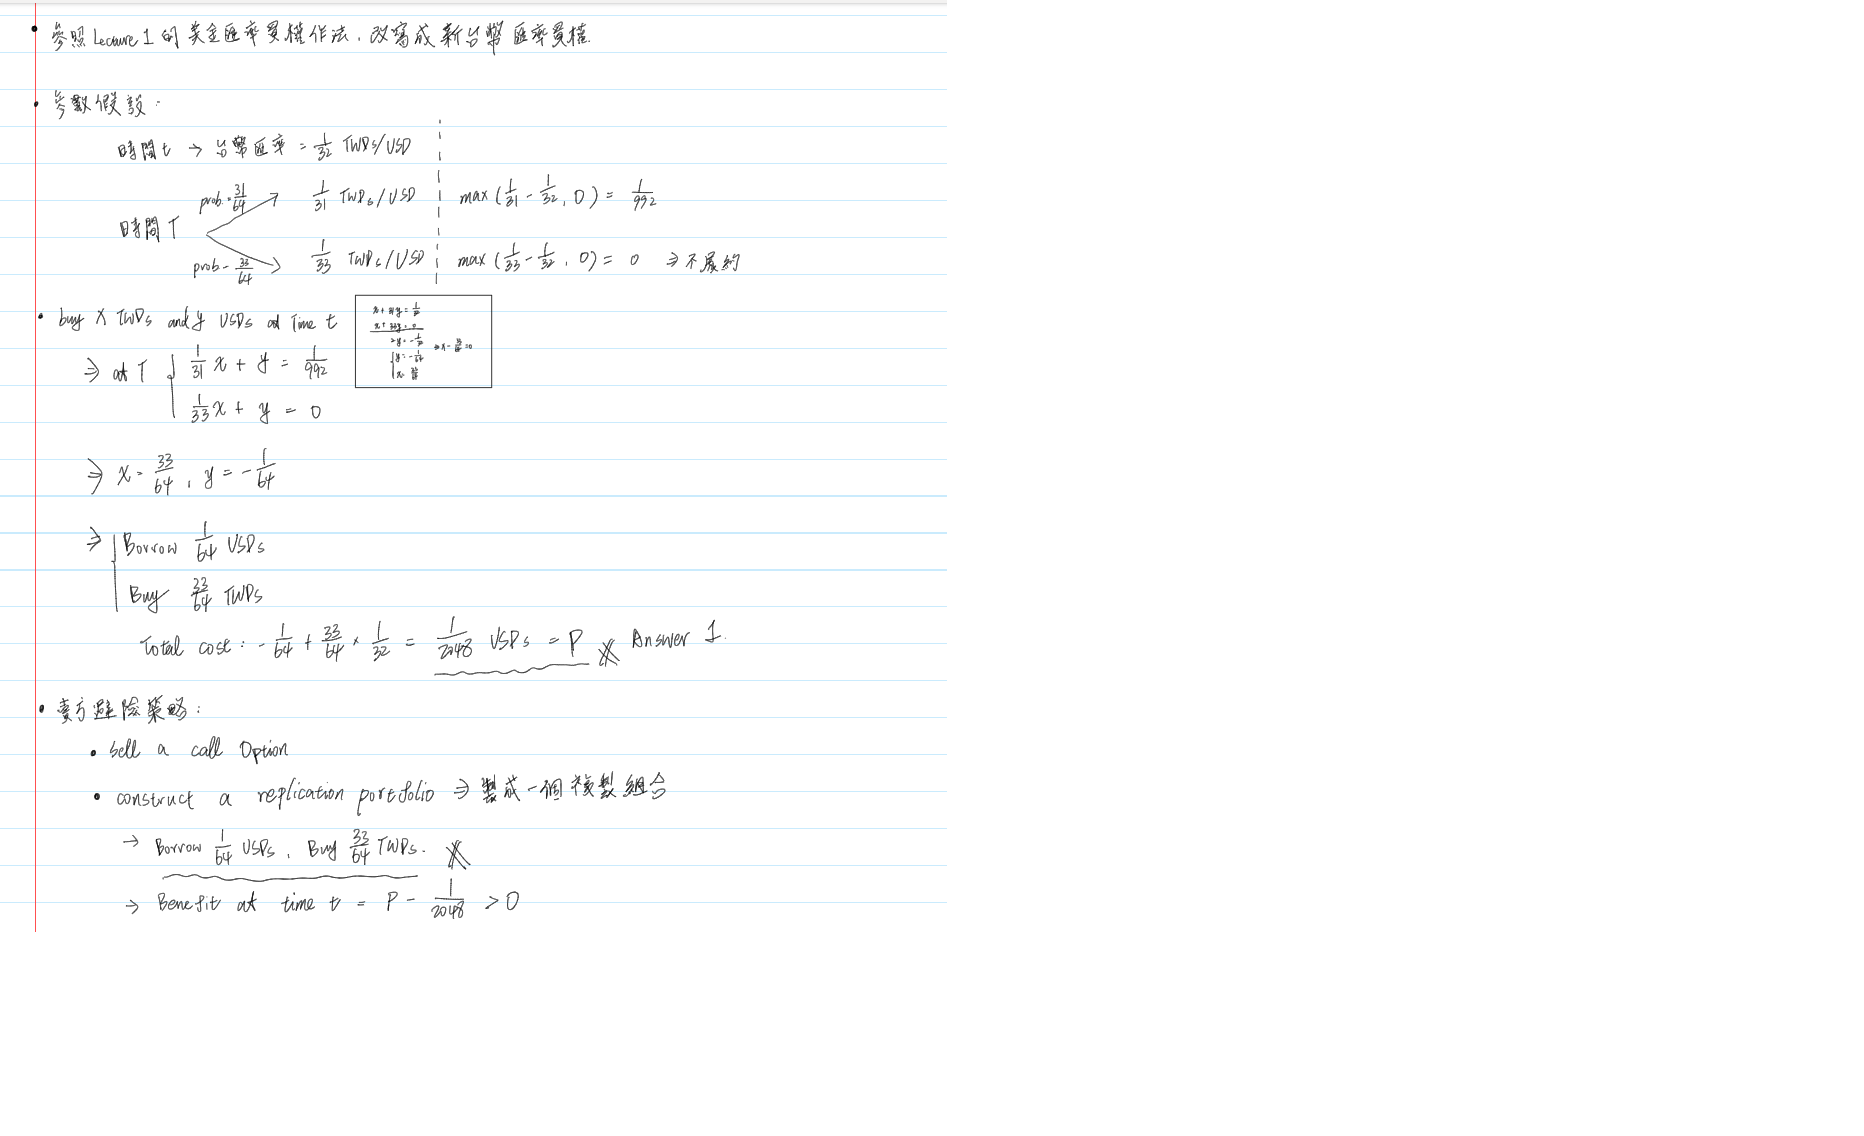 • 參照 Lecture 1 的美金匯率買權作法，改寫成新台幣匯率買權.
• 參數假設:
時間 t → 台幣匯率 = 1/32 TWDs/USD
prob. = 31/64 1/31 TWDs/USD max (1/31 - 1/32, 0) = 1/992
時間 T
prob = 33/64 1/33 TWDs/USD max (1/33 - 1/32, 0) = 0 ⇒ 不履約
• buy X TWDs and y USDs at Time t
x + 31y = 1/32
x + 33y = 0
⇒ at T { 1/31 x + y = 1/992
1/33 x + y = 0
⇒ x = 33/64, y = -1/64
⇒ { Borrow 1/64 USDs
Buy 33/64 TWDs
Total cost: -1/64 + 33/64 × 1/32 = 1/2048 USDs = P ※ Answer 1.
• 賣方避險策略:
• Sell a call Option
• construct a replication portfolio ⇒ 製成一個複製組合
→ Borrow 1/64 USDs, Buy 33/64 TWDs. ※
→ Benefit at time t = P - 1/2048 > 0